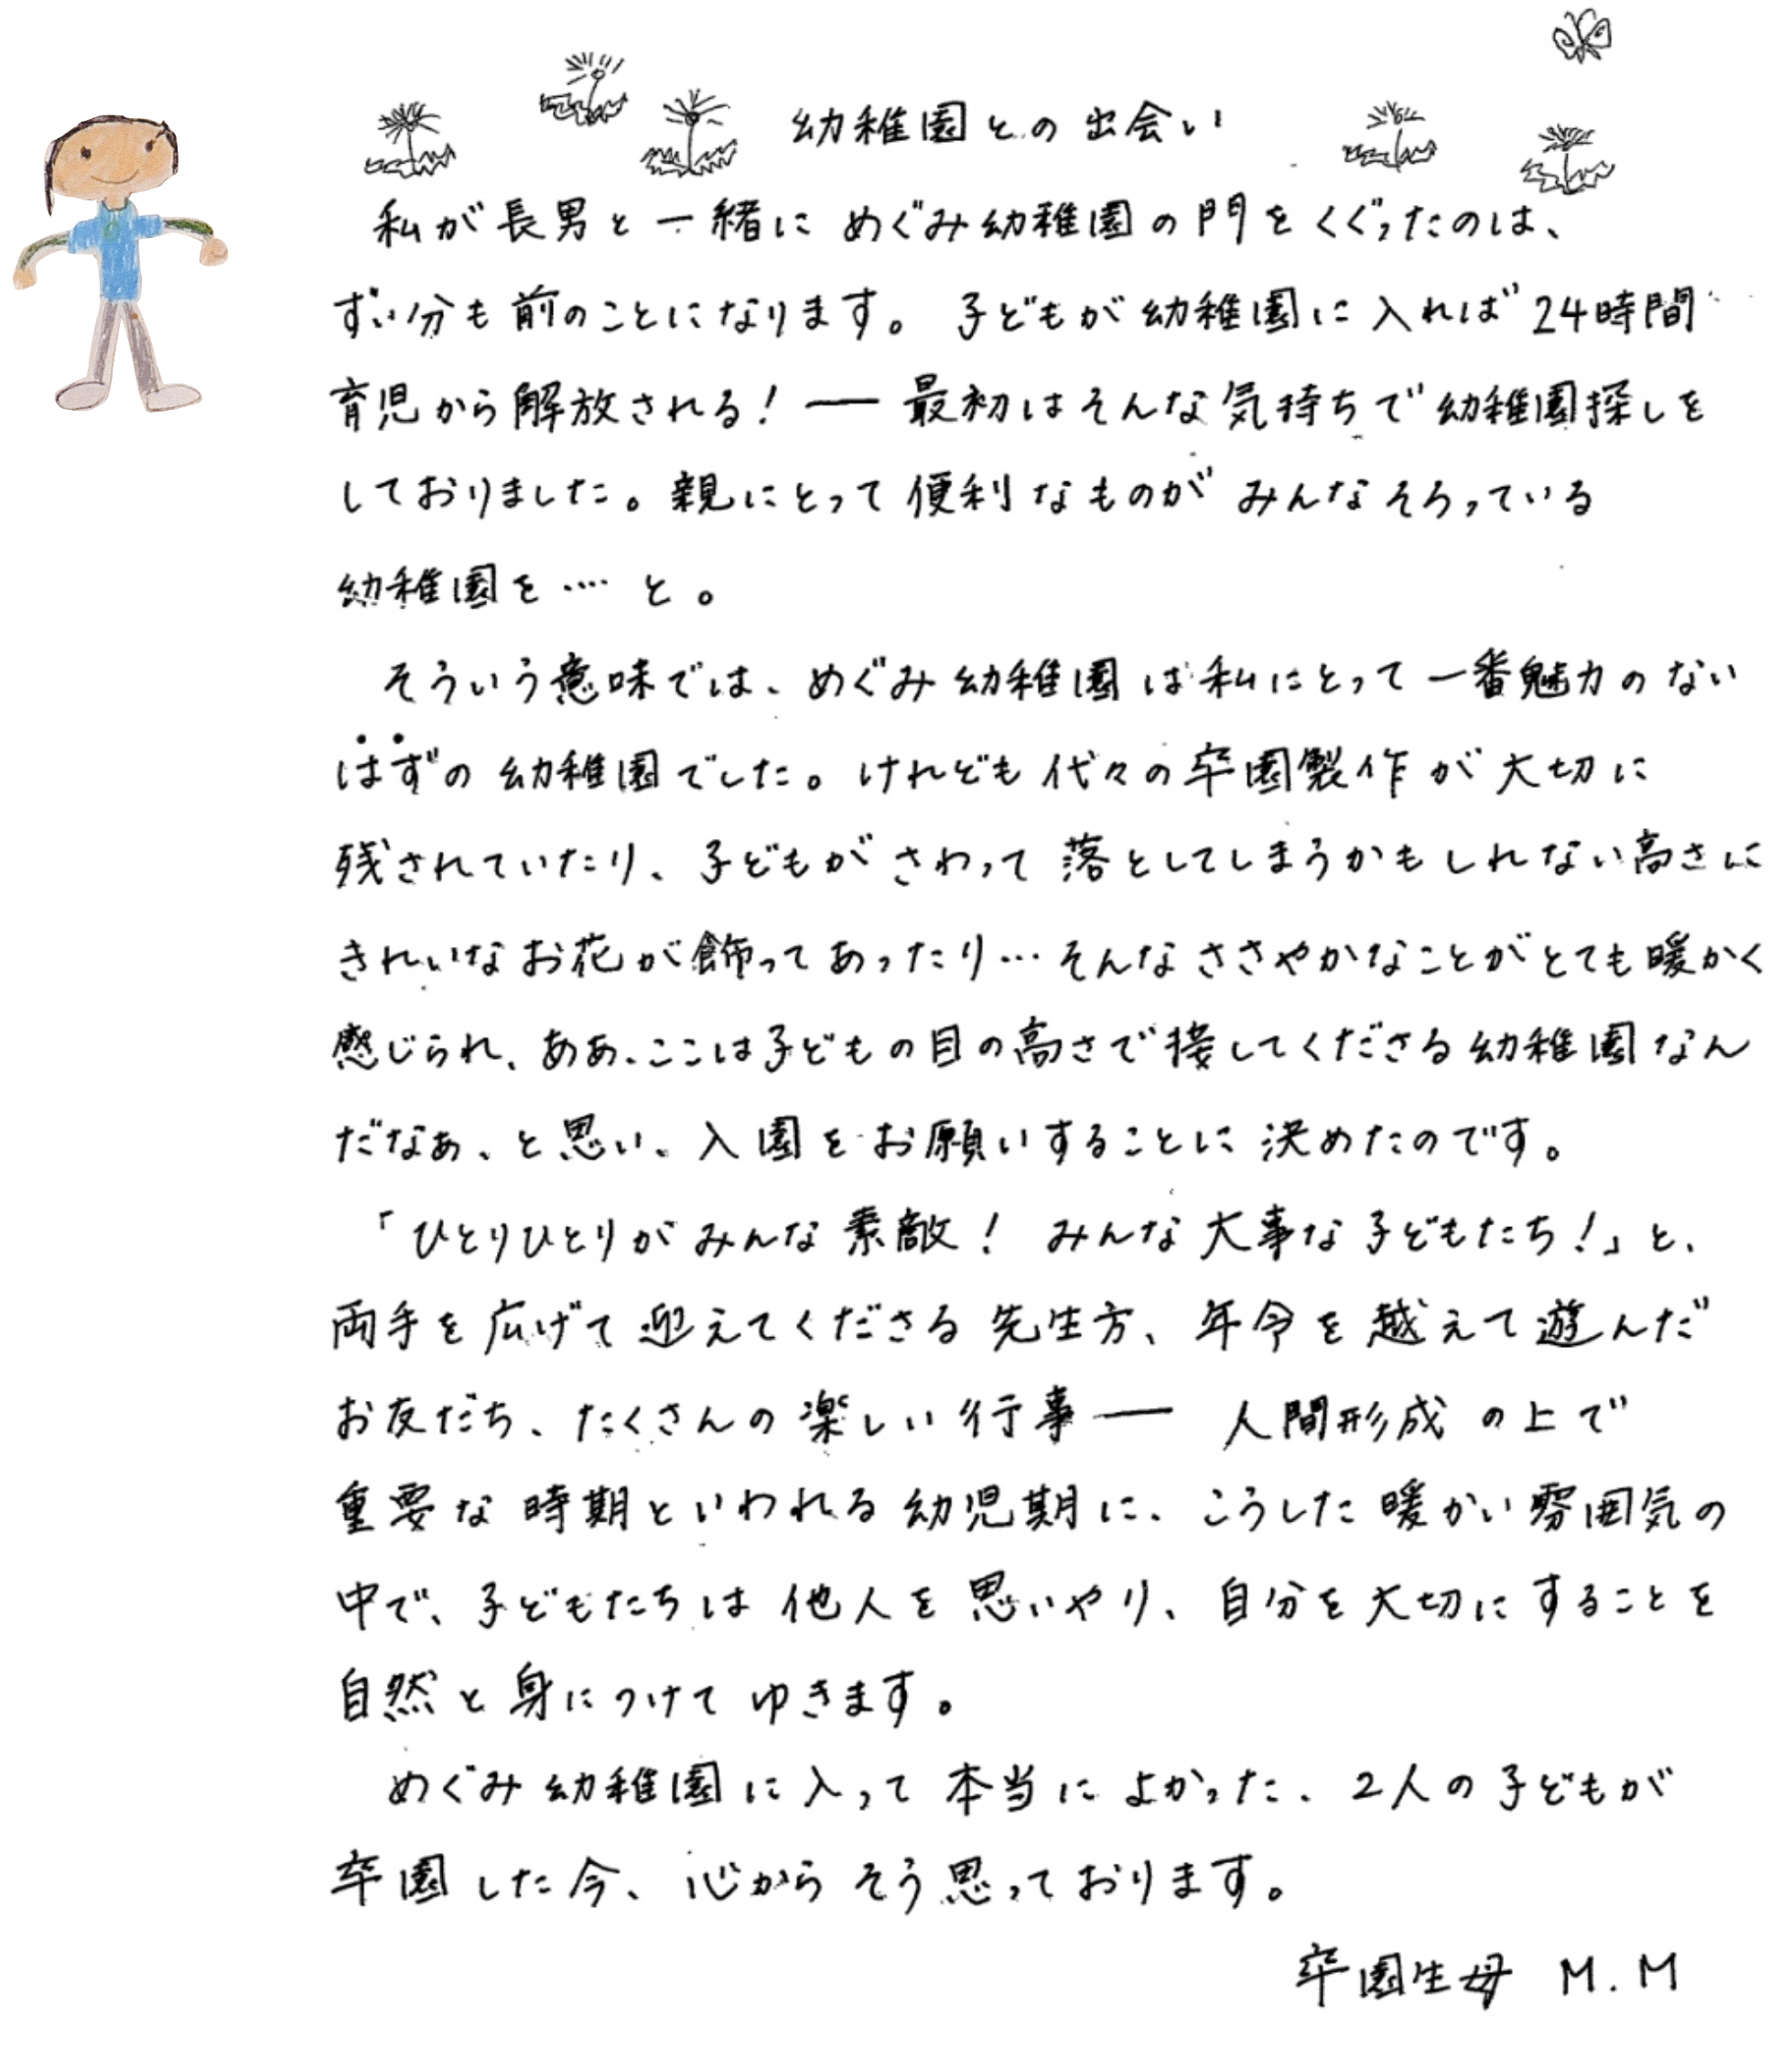 幼稚園との出会い
私が長男と一緒にめぐみ幼稚園の門をくぐったのは、
ずい分も前のことになります。子どもが幼稚園に入れば24時間
育児から解放される！── 最初はそんな気持ちで幼稚園探しを
しておりました。親にとって便利なものがみんなそろっている
幼稚園を‥‥と。
そういう意味では、めぐみ幼稚園は私にとって一番魅力のない
はずの幼稚園でした。けれども代々の卒園製作が大切に
残されていたり、子どもがさわって落としてしまうかもしれない高さに
きれいなお花が飾ってあったり…そんなささやかなことがとても暖かく
感じられ、ああ、ここは子どもの目の高さで接してくださる幼稚園なん
だなぁ、と思い、入園をお願いすることに決めたのです。
「ひとりひとりがみんな素敵！みんな大事な子どもたち！」と、
両手を広げて迎えてくださる先生方、年令を越えて遊んだ
お友だち、たくさんの楽しい行事── 人間形成の上で
重要な時期といわれる幼児期に、こうした暖かい雰囲気の
中で、子どもたちは他人を思いやり、自分を大切にすることを
自然と身につけてゆきます。
めぐみ幼稚園に入って本当によかった、2人の子どもが
卒園した今、心からそう思っております。
卒園生母 M.M